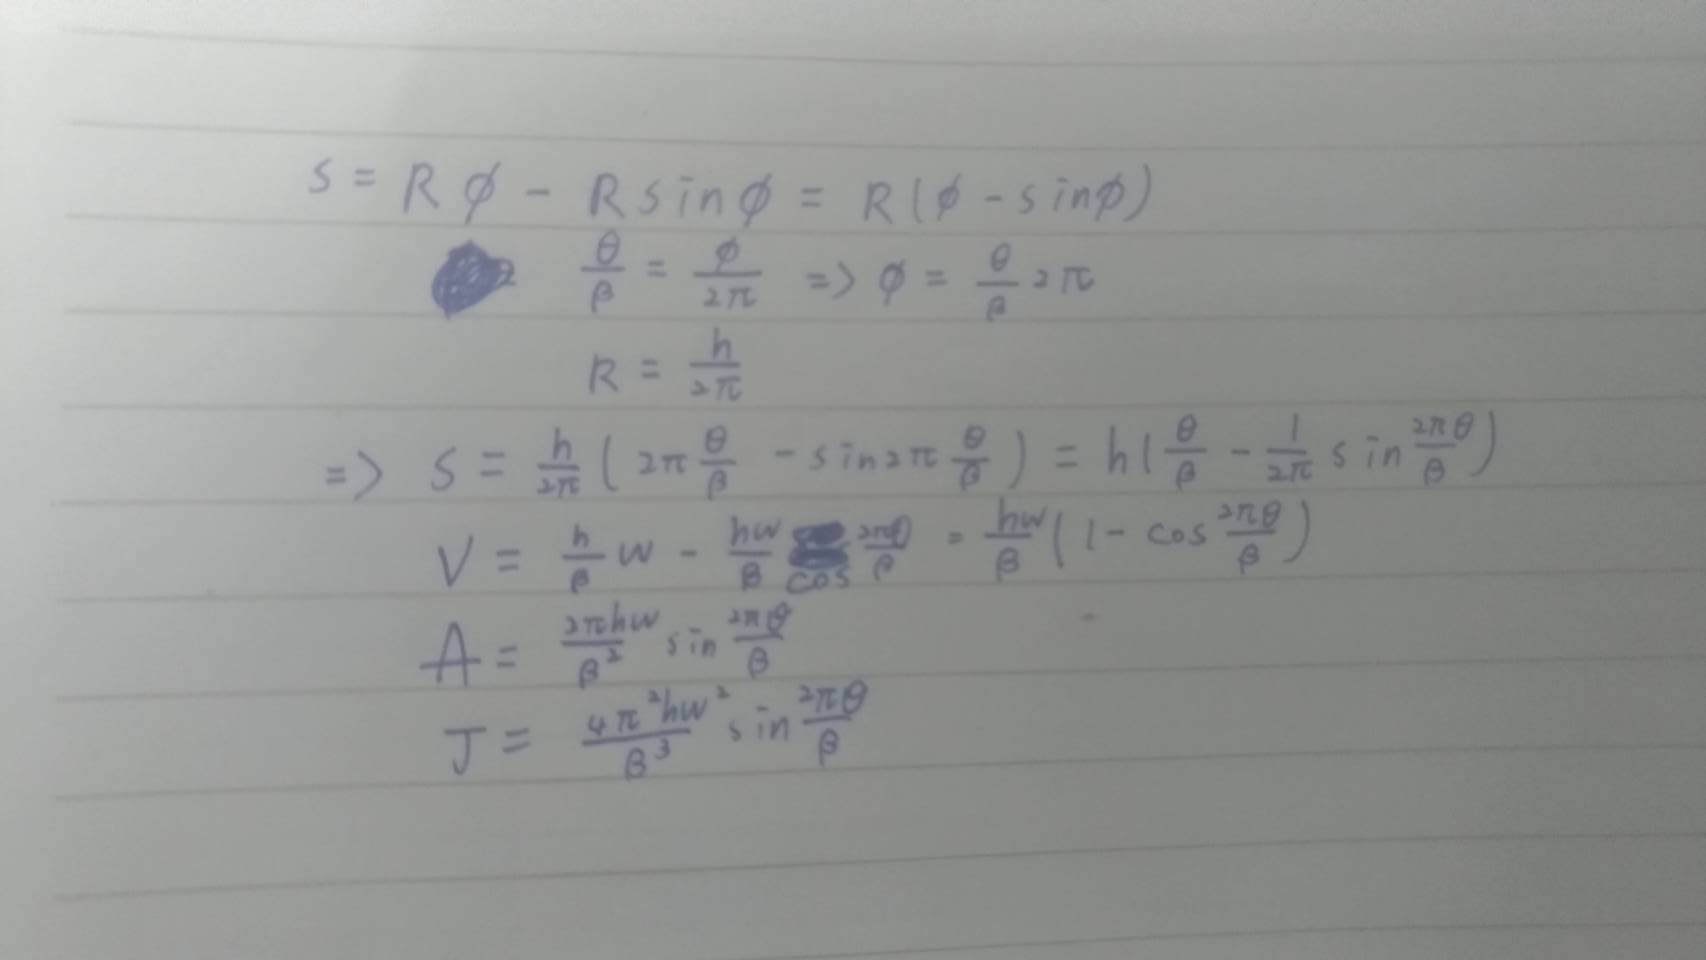 s = Rϕ - R sinϕ = R(ϕ - sinϕ)
θ/β = ϕ/2π => ϕ = θ/β 2π
R = h/2π
=> S = h/2π ( 2π θ/β - sin2π θ/β ) = h( θ/β - 1/2π sin 2πθ/β )
V = h/β w - hw/β cos 2πθ/β = hw/β ( 1 - cos 2πθ/β )
A = 2πhw/β² sin 2πθ/β
J = 4π²hw²/β³ sin 2πθ/β